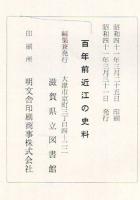 昭和四十一年三月二十五日 印刷
昭和四十一年三月三十一日 発行
百年前近江の史料
編集兼発行
大津市京町三丁目四ー二二
滋賀県立図書館
印刷所
明文舎印刷商事株式会社